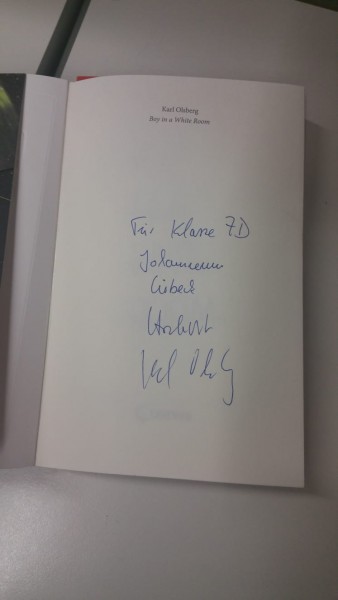 Karl Olsberg
Boy in a White Room
Für Klasse 7D
Johanneum
Lübeck
Karl Olsberg